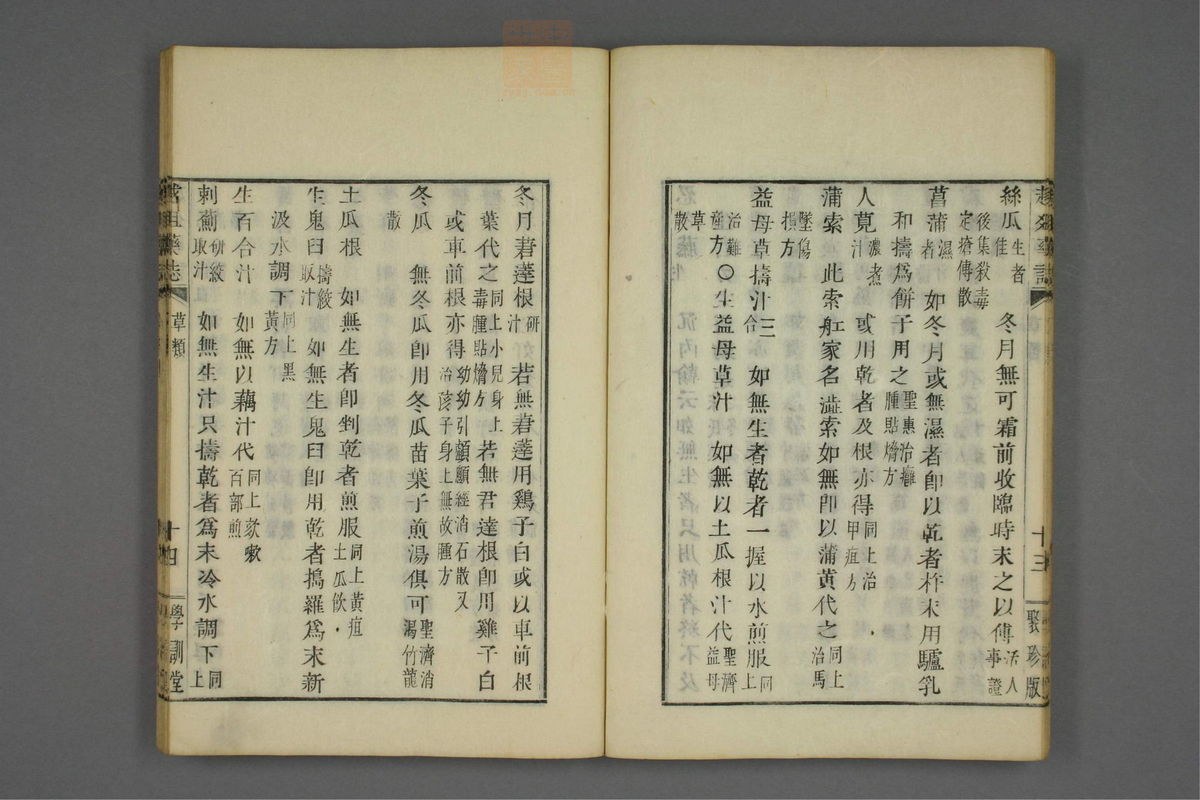 絲瓜生者佳 冬月無可霜前收臨時末之以傅活人事證
後集殺毒定搶傅散
菖蒲濕者 如冬月或無濕者卽以乾者杵末用驢乳
和擣爲餅子用之聖惠治癰腫貼熁方
人莧濃煮汁 或用乾者及根亦得同上治甲疽方
蒲索 此索舡家名澁索如無卽以蒲黃代之同上治馬
墜傷損方
益母草擣汁三合 如無生者乾者一握以水煎服同上
治難產方〇生益母草汁 如無以土瓜根汁代聖濟益母
草散
冬月莙薘根研汁 若無莙薘用鷄子白或以車前根
葉代之同上小兒身上毒腫貼熁方 若無君達根卽用雞子白
或車前根亦得幼幼引顱顖經消石散又治孩子身上無故腫方
冬瓜 無冬瓜卽用冬瓜苗葉子煎湯俱可聖濟消渴竹龍
散
土瓜根 如無生者卽剉乾者煎服同上黃疸土瓜飲
生鬼臼擣絞取汁 如無生鬼臼卽用乾者搗羅爲末新
汲水調下同上黑黃方
生百合汁 如無以藕汁代同上欬嗽百部煎
刺薊研絞取汁 如無生汁只擣乾者爲末冷水調下同上
草類
十三
聚珍版
十四
學訓堂